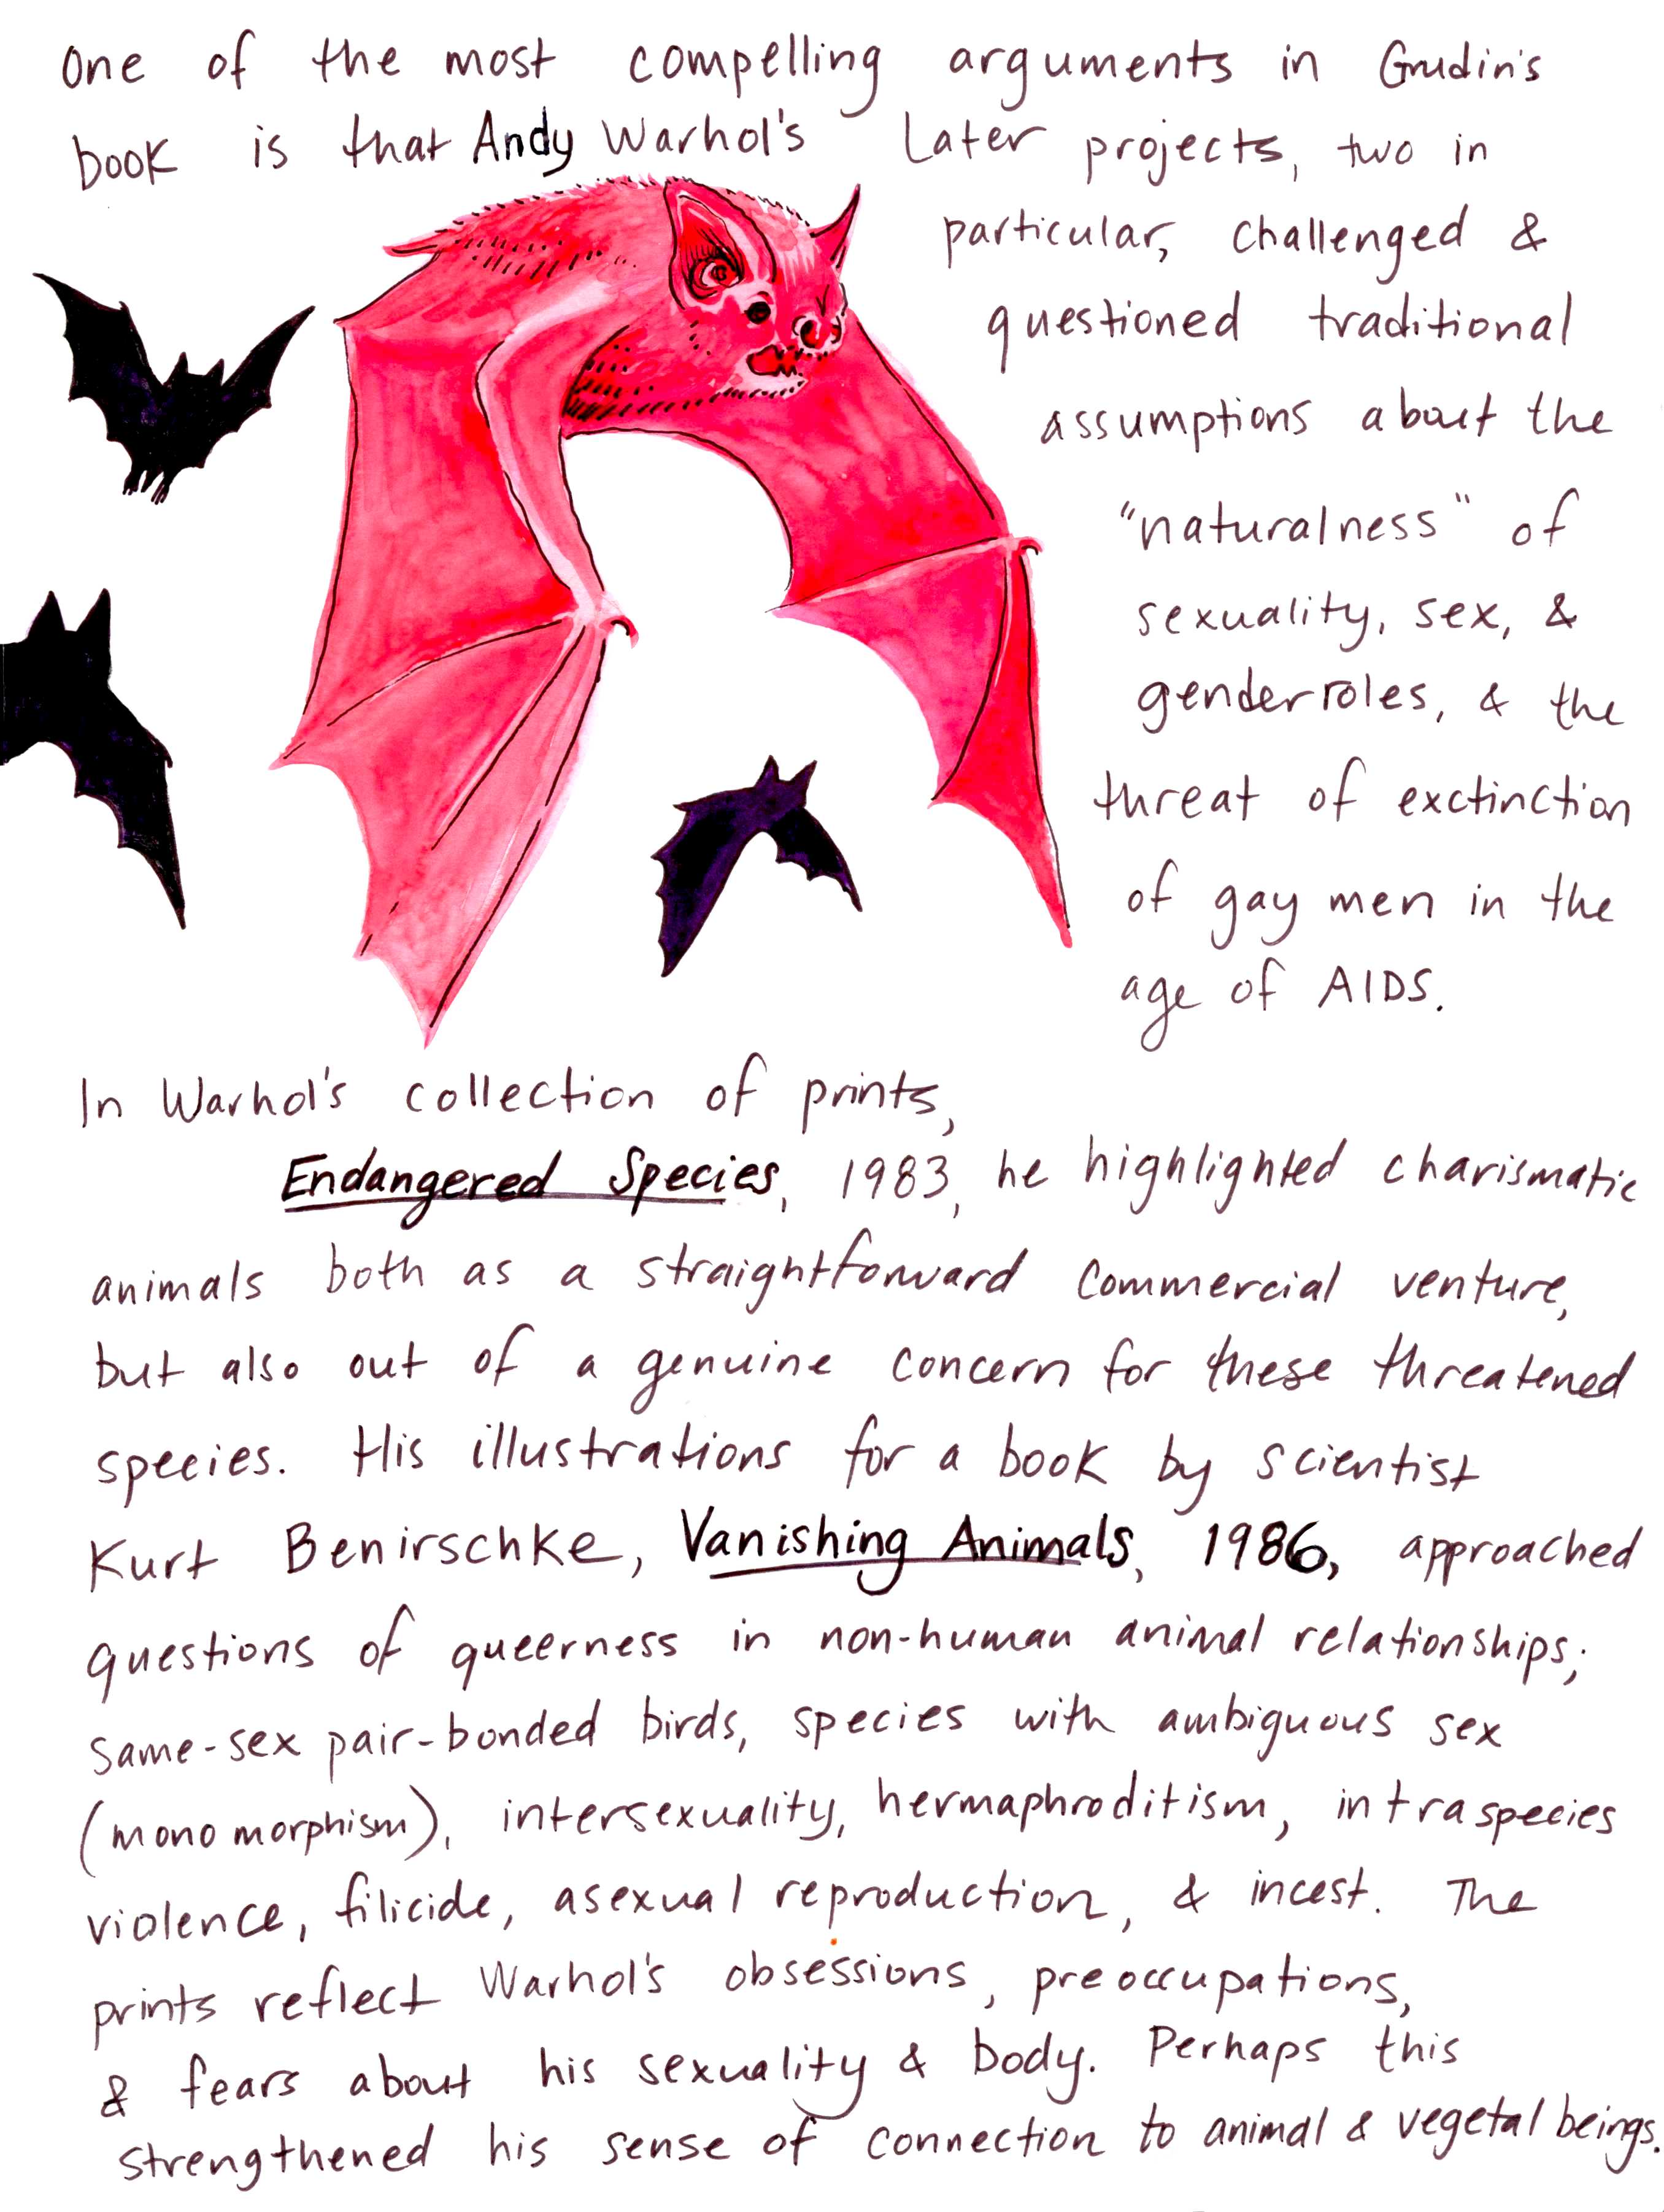 One of the most compelling arguments in Grudin's
book is that Andy Warhol's Later projects, two in
particular, challenged &
questioned traditional
assumptions about the
"naturalness" of
sexuality, sex, &
gender roles, & the
threat of exctinction
of gay men in the
age of AIDS.
In Warhol's collection of prints,
Endangered Species, 1983, he highlighted charismatic
animals both as a straightforward commercial venture,
but also out of a genuine concern for these threatened
species. His illustrations for a book by scientist
Kurt Benirschke, Vanishing Animals, 1986, approached
questions of queerness in non-human animal relationships;
same-sex pair-bonded birds, species with ambiguous sex
(monomorphism), intersexuality, hermaphroditism, intraspecies
violence, filicide, asexual reproduction, & incest. The
prints reflect Warhol's obsessions, preoccupations,
& fears about his sexuality & body. Perhaps this
strengthened his sense of connection to animal & vegetal beings.